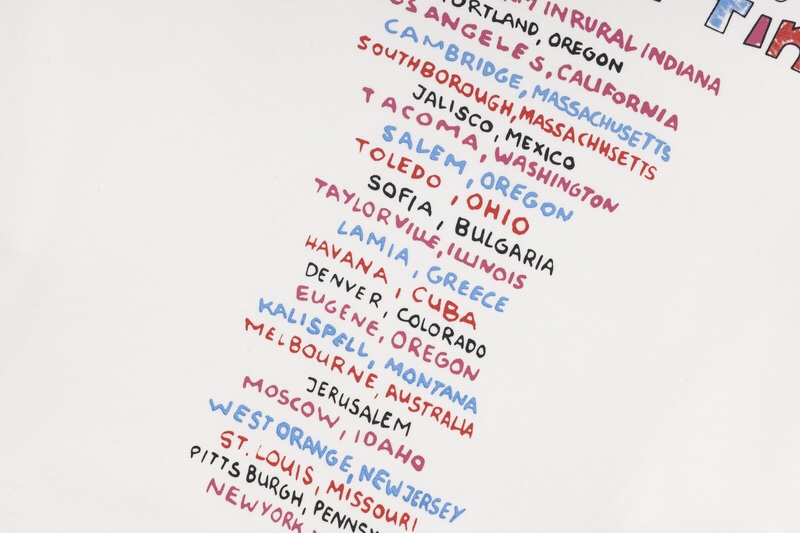 IN RURAL INDIANA
PORTLAND, OREGON
LOS ANGELES, CALIFORNIA
CAMBRIDGE, MASSACHUSETTS
SOUTHBOROUGH, MASSACHHSETTS
JALISCO, MEXICO
TACOMA, WASHINGTON
SALEM, OREGON
TOLEDO, OHIO
SOFIA, BULGARIA
TAYLORVILLE, ILLINOIS
LAMIA, GREECE
HAVANA, CUBA
DENVER, COLORADO
EUGENE, OREGON
KALISPELL, MONTANA
MELBOURNE, AUSTRALIA
JERUSALEM
MOSCOW, IDAHO
WEST ORANGE, NEW JERSEY
ST. LOUIS, MISSOURI
PITTSBURGH, PENNSY
NEW YORK